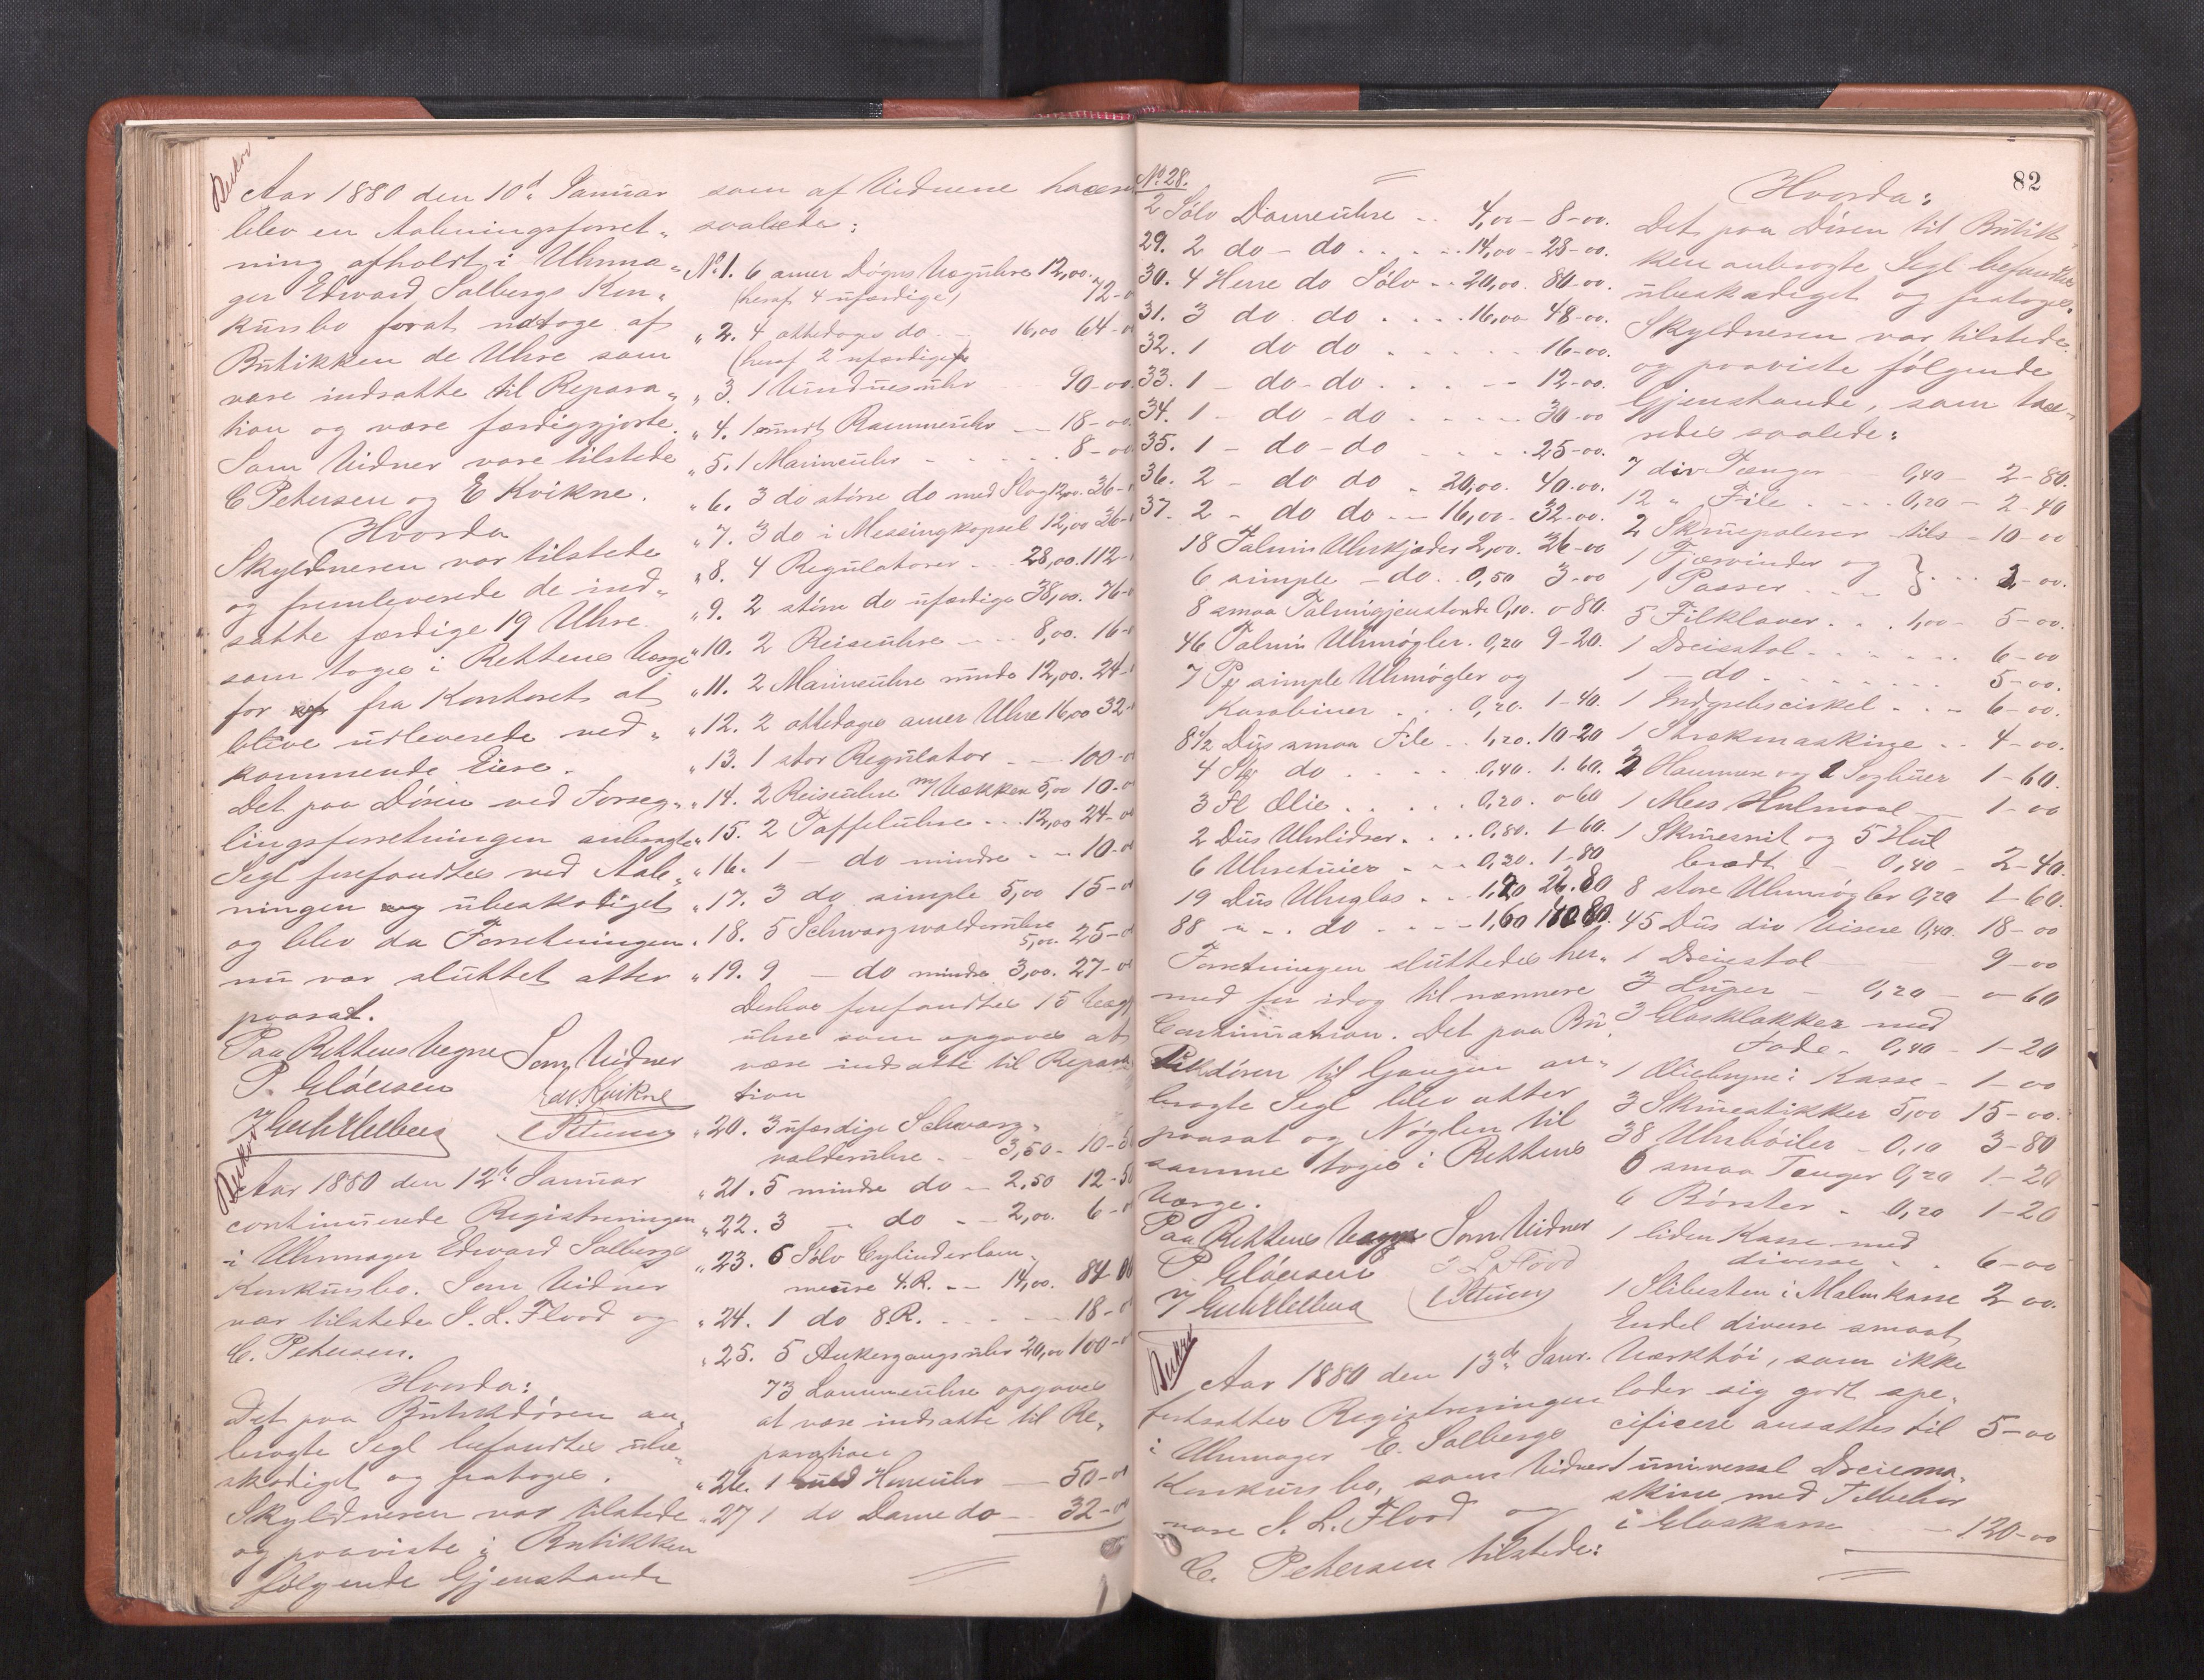 Aar 1880 den 10d Januar
blev en Aabningsforret„
ning afholdt i Uhrma„
ger Edward Solbergs Kon„
kursbo forat udtage af
Butikken de Uhre som
vare indsatte til Repara„
tion og være færdiggjorte.
Som Vidner vare tilstede
C Petersen og E Kvikne.
Hvorda
Skyldneren var tilstede
og fremleverede de ind„
satte færdige 19 Uhre.
som toges i Rettens Værge
for fra Kontoret at
blive udleverede ved„
kommende Eiere.
Det paa Døren ved Forseg„
lingsforretningen anbragte
Segl forefandtes ved Aab„
ningen ubeskadiget
og blev da Forretningen
nu var sluttet atter
paasat.
Paa Rettens Vegne Som Vidner
P. Gløersen Edv. Kvikne
CPetersen
Aar 1880 den 12te Januar
continuerede Registreringen
i Uhrmager Edward Solbergs
Konkursbo. Som Vidner
var tilstede J. L. Flood og
C. Petersen.
Hvorda:
Det paa Butikdøren an„
bragte Segl befandtes ube„
skadiget og fratoges.
Skyldneren var tilstede
og paaviste i Butikken
følgende Gjenstande
som af Vidnene taxer
saaledes:
No 1. 6 amer Døgns Væguhre 12,00.
(heraf 4 ufærdige) 72-0
„ 2. 4 ottedages do 16,00 64-0
(heraf 2 ufærdige)
„ 3. 1 Vinduesuhr 90-00
„ 4. 1 rundt Rammeuhr 18-00
„ 5. 1 Marineuhr 8-00
„ 6. 3 do større do med Slag 12,00. 36-
„ 7. 3 do i Messingkapsel 12,00 36-
„ 8. 4 Regulatorer 28,00. 112-
„ 9. 2 større do ufærdige 38,00. 76-
„ 10. 2 Reiseuhre 8,00. 16-
„ 11. 2 Marineuhre runde 12,00. 24-
„ 12. 2 ottedages amer Uhre 16,00 32-
„ 13. 1 stor Regulator 100-0
„ 14. 2 Reiseuhre m/Vækker 5,00 10-0
„ 15. 2 Taffeluhre 12,00 24-00
„ 16. 1 – do mindre 10-0
„ 17. 3 do simple 5,00 15-0
„ 18. 5 Schwarzwalderuhre
5,00. 25-0
„ 19. 9 – do mindre 3,00. 27-00
Desuden forefandtes 15 Væg
uhre som opgaves at
være indsatte til Repara
tion
„ 20. 3 ufærdige Schwarz„
valderuhre 3,50 - 10-5
„ 21. 5 mindre do 2,50 12-50
„ 22. 3 – do 2,00. 6-0
„ 23. 6 Sølv Cylinderlom„
meure 4.R. 14,00. 84 00
„ 24. 1 do 8.R. 18-0
„ 25. 5 Ankergangsuhr 20,00 100-0
73 Lommeuhre opgaves
at være indsatte til Re„
paration
„ 26. 1 Guld Herreuhr 50-0
„ 27 1 do Dame do 32-0
82
No. 28.
2 Sølv Dameuhre 4,00 - 8-00.
29. 2 do - do 14,00 - 28-00.
30. 4 Herre do Sølv 20,00. 80-00.
31. 3 do do 16,00 48-00.
32. 1 do do 16-00.
33. 1 - do - do 12-00.
34. 1 - do - do 30-00
35. 1 - do - do 25-00.
36. 2 - do do 20,00. 40.00.
37. 2 - do do 16,00. 32-00.
18 Talmin Uhrkjæder 2,00. 36-00
6 simple - do. 0,50 3-00
8 smaa Talmigjenstande 0,10. 0 80.
46 Talmin Uhrnøgler. 0,20 9-20.
7 simple Uhrnøgler og
Karabiner 0,20. 1-40.
8 1/2 Dus smaa File 1,20. 10-20
4 Stk do 0,40. 1.60.
3 Fl Olie 0,20. 0 60
2 Dus Uhrlidser 0,80. 1-60.
6 Uhretuier 0,30. 1-80
19 Dus Uhrglas 26.80
88 „ do 1,60 140 80.
Forretningen sluttedes her„
med for idag til nærmere
Continuation. Det paa Bu
tikdøren til Gangen an„
bragte Segl blev atter
paasat og Nøglen til
samme toges i Rettens
Værge.
Paa Rettens Vegne Som Vidner
P. Gløersen J L Flood
CPetersen
Aar 1880 den 13de Janr.
fortsattes Registreringen
i Uhrmager E. Solbergs
Konkursbo, som Vidner
vare J. L. Flood og
C. Petersen tilstede:
Hvorda:
Det paa Døren til Butik„
ken anbragte Segl befandtes
ubeskadiget og fratoges.
Skyldneren var tilstede
og paaviste følgende
Gjenstande, som tax„
redes saalede:
7 div Tænger 0,40 - 2-80.
12 „ File 0,20 - 2-40
2 Skruepolerer tils - 10-00
1 Fjærvinder og
1 Passer 2-00.
5 Filklaver 1,00 - 5-00.
1 Dreiestol 6-00
1 - do 5-00.
1 Indgrebscirkel 6-00.
1 Strækmaskine 4-00.
2 Hammere og 2 Sagbuer 1-60.
1 Mes Hulmaal 1-00
1 Skruesnit og 5 Hul
brædt - 0,40 - 2-40.
8 store Uhrnøgler 0,20 1-60.
45 Dus div Visere 0,40. 18-00
1 Dreiestol 9-00
3 Luper - 0,20 - 0-60
3 Glasklokker med
Fade - 0,40 - 1-20
1 Oliebryne i Kasse - 1-00
3 Skruestikker 5,00 15-00.
38 Uhrbøiler - 0,10 3-80
6 smaa Tænger 0,20 1-20
6 Børster - 0,20 1-20
1 liden Kasse med
diverse 6-00
1 Slibesten i Malmkasse 2 00.
Endel diverse smaat
Værktøi, som ikke
lader sig godt spe„
cificere ansattes til 5-00
1 universal Dreiema„
skine med Tilbehør
i Glaskasse 120-00